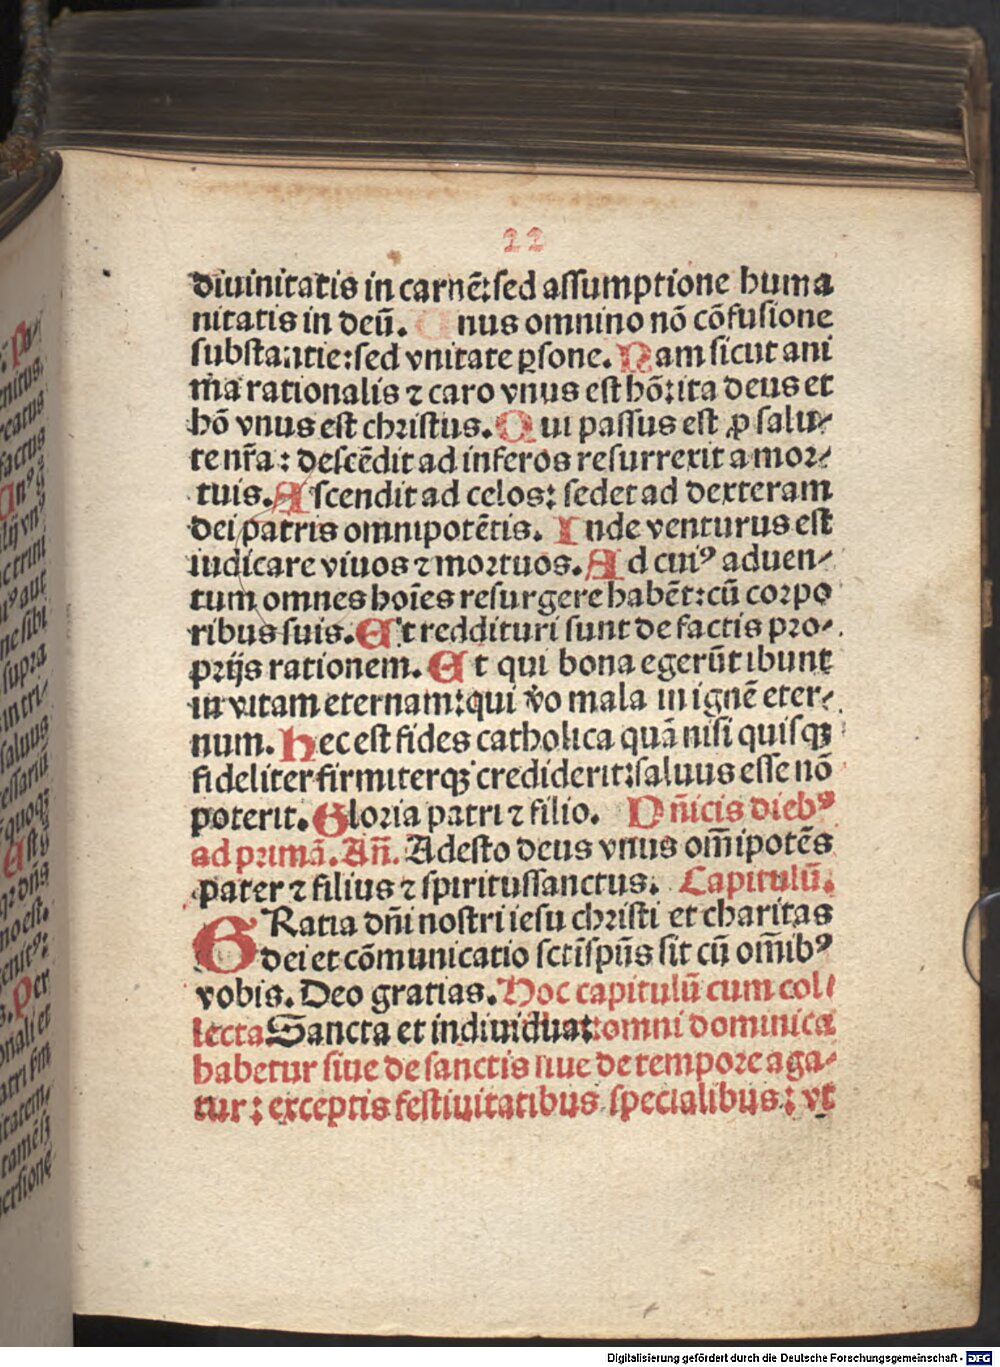 22
diuinitatis in carnē:sed assumptione huma
nitatis in deū. Unus omnino nō cōfusione
substantie:sed vnitate ꝑsone. Nam sicut ani
ma rationalis ⁊ caro vnus est hō:ita deus et
hō vnus est christus. Qui passus est ꝓ salu⸗
te nr̄a: descēdit ad inferos resurrexit a mor⸗
tuis. Ascendit ad celos: sedet ad dexteram
dei patris omnipotētis. Inde venturus est
iudicare viuos ⁊ mortuos. Ad cuiꝰ aduen⸗
tum omnes hoīes resurgere habēt:cū corpo
ribus suis. Et reddituri sunt de factis pro⸗
prijs rationem. Et qui bona egerūt ibunt
in vitam eternam:qui v̄o mala in ignē eter⸗
num. Hec est fides catholica quā nisi quisqꝫ
fideliter firmiterqꝫ crediderit:saluus esse nō
poterit. Gloria patri ⁊ filio. Dn̄icis diebꝰ
ad primā. An̄. Adesto deus vnus om̄ipotēs
pater ⁊ filius ⁊ spiritussanctus. Capitulū.
GRatia dn̄i nostri iesu christi et charitas
dei et cōmunicatio sctīsp̄us sit cū om̄ibꝰ
vobis. Deo gratias. Hoc capitulū cum col⸗
lecta Sancta et indiuidua:omni dominica
habetur siue de sanctis siue de tempore aga⸗
tur: exceptis festiuitatibus specialibus: vt
Digitalisierung gefördert durch die Deutsche Forschungsgemeinschaft - DFG